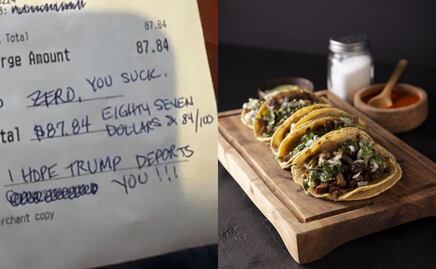 Total 87.84
rge Amount 87.84
ZERO, YOU SUCK.
tal $87.84 EIGHTY SEVEN
DOLLARS & 84/100
I HOPE TRUMP DEPORTS
YOU!!!
rchant copy